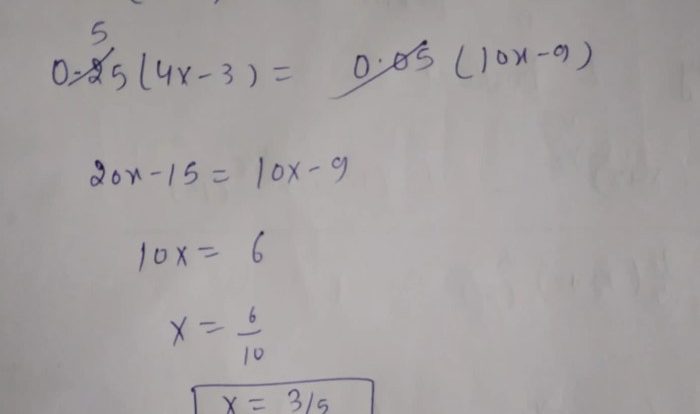 5
0.25(4x-3) = 0.05 (10x-9)
20x-15 = 10x-9
10x = 6
x = 6/10
x = 3/5